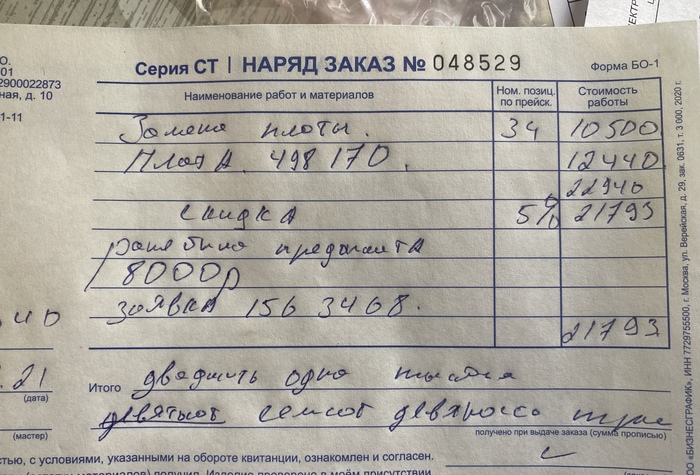 ЕКТР
О.
01
2900022873
ная, д. 10
1-11
Серия СТ | НАРЯД ЗАКАЗ № 048529
Форма БО-1
Наименование работ и материалов
Ном. позиц. по прейск.
Стоимость работы
Замена платы. 34 10500
Плата 498170. 12440
22940
скидка 5% 21793
Ранее была предоплата
8000р
заявка 1563468.
21793
40
.21
(дата)
(мастер)
Итого двадцать одна тысяча
девятьсот семсот девяносто три
получено при выдаче заказа (сумма прописью)
стью, с условиями, указанными на обороте квитанции, ознакомлен и согласен.
получил. Изделие проверено в моём присутствии
«БИЗНЕСГРАФИК», ИНН 7729755500, г. Москва, ул. Верейская, д. 29, зак. 0631, т. 3 000, 2020 г.